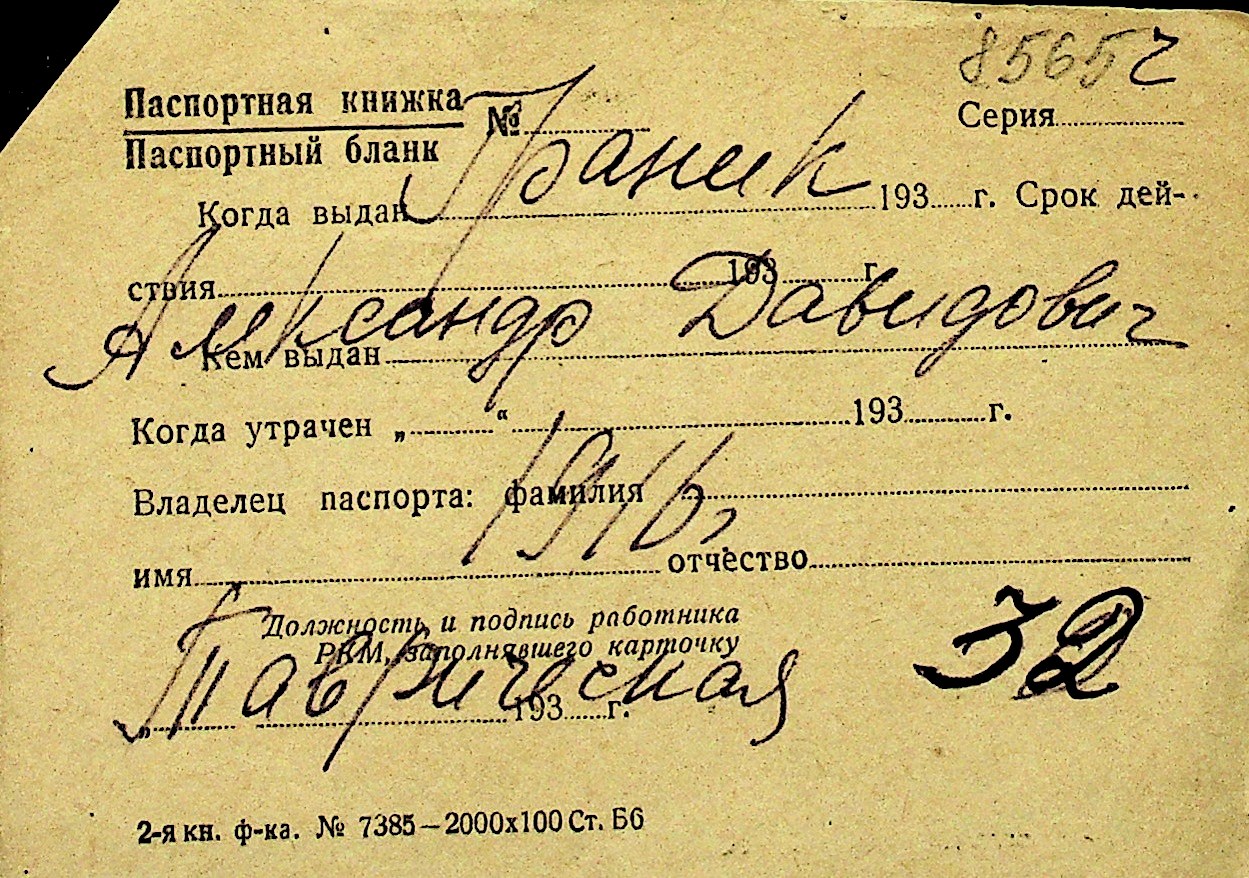 8565 г
Паспортная книжка
Паспортный бланк
№ Серия
Граник
Когда выдан 193 г. Срок дей-
ствия 193 г.
Александр Давидович
Кем выдан
Когда утрачен „ “ 193 г.
1916 г.
Владелец паспорта: фамилия
имя отчество
Должность и подпись работника
РКМ, заполнявшего карточку
Таврическая 32
„ 193 г.
2-я кн. ф-ка. № 7385—2000х100 Ст. Б6